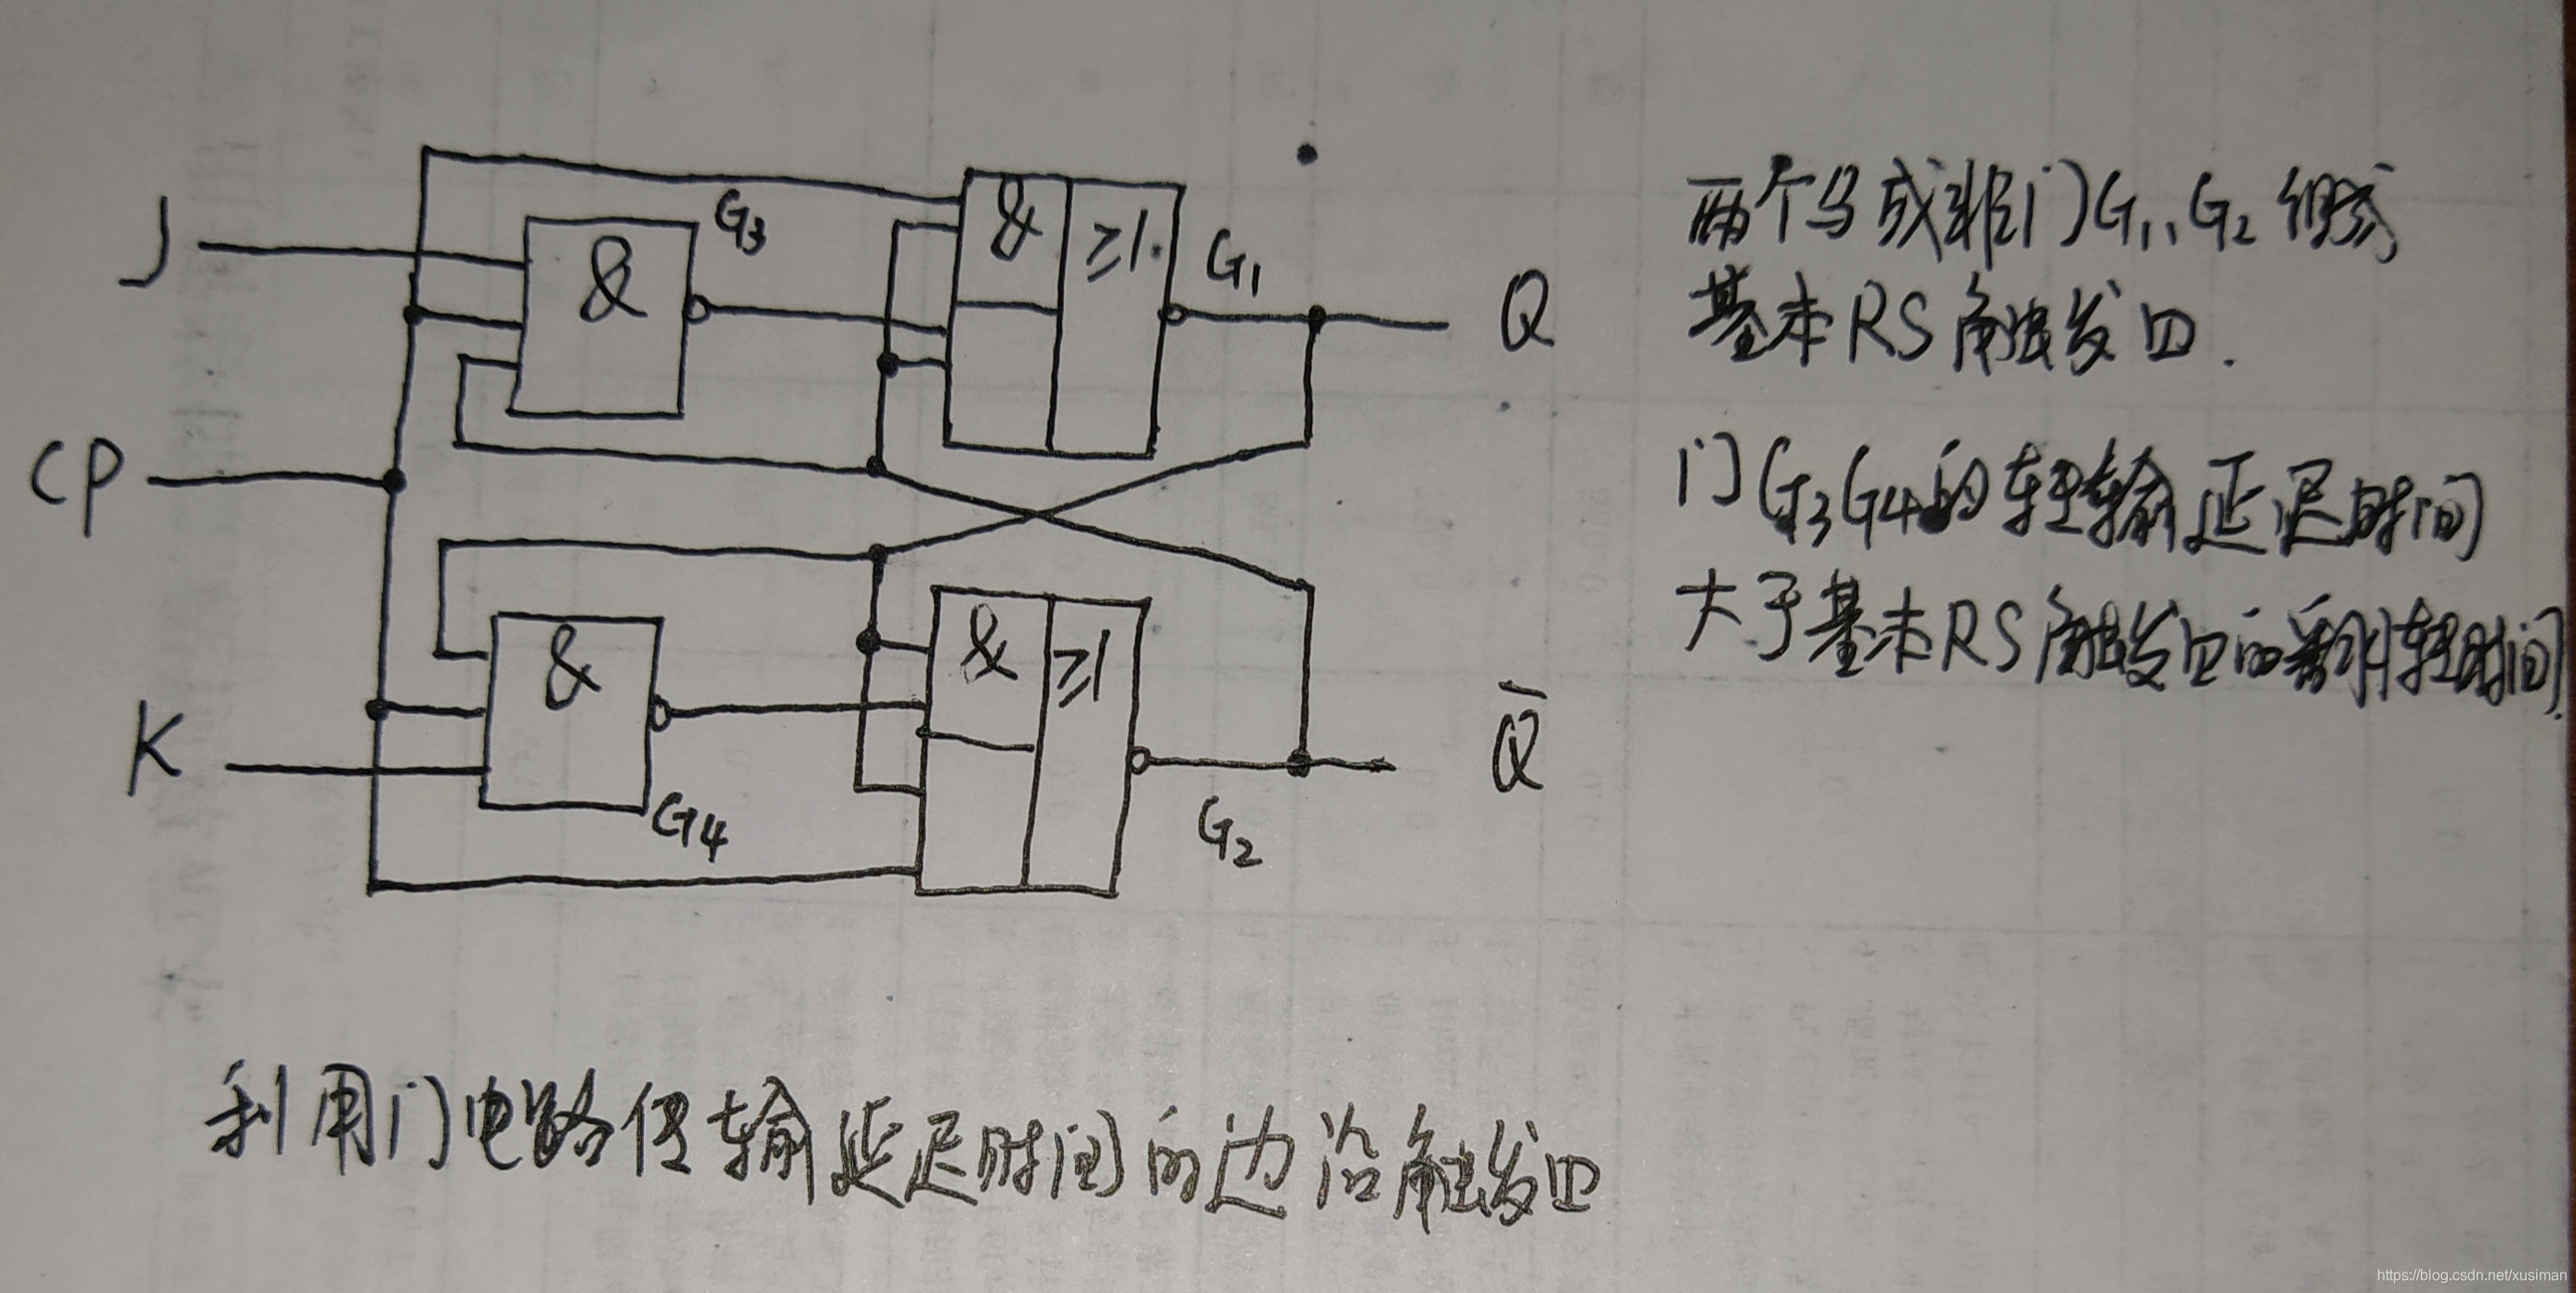 J
&
G3
&
≥1
G1
Q
CP
K
&
G4
&
≥1
G2
Q̄
两个与或非门G1、G2组成
基本RS触发口.
门G3G4的转输延迟时间
大于基本RS触发口的翻转时间.
利用门电路传输延迟时间的边沿触发口
https://blog.csdn.net/xusiman